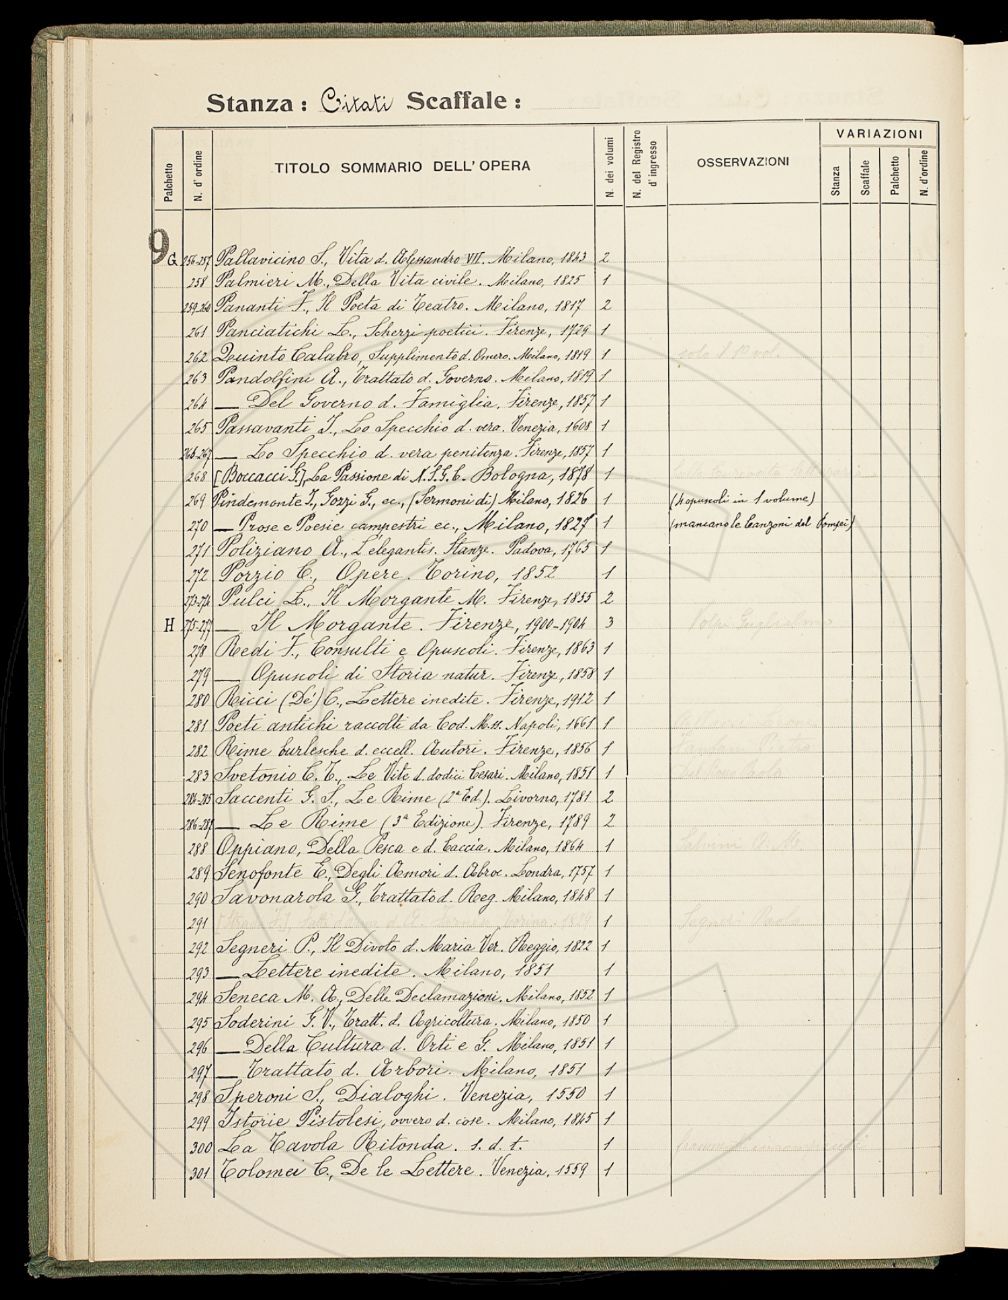 Stanza: Citati Scaffale:
Palchetto N. d'ordine TITOLO SOMMARIO DELL'OPERA N. dei volumi N. del Registro d'ingresso OSSERVAZIONI VARIAZIONI Stanza Scaffale Palchetto N. d'ordine
9
G 256-257 Pallavicino S., Vita d. Alessandro VII. Milano, 1843 2
258 Palmieri M., Della Vita civile. Milano, 1825 1
259-260 Pananti F., Il Poeta di Teatro. Milano, 1817 2
261 Panciatichi L., Scherzi poetici. Firenze, 1729 1
262 Quinto Calabro, Supplimento d. Omero. Milano, 1819 1 solo il 1° vol.
263 Pandolfini A., Trattato d. Governo. Milano, 1819 1
264 — Del Governo d. Famiglia. Firenze, 1857 1
265 Passavanti J., Lo Specchio d. vera. Venezia, 1608 1
266-267 — Lo Specchio d. vera penitenza. Firenze, 1857 1
268 [Boccacci G.], La Passione di N.S.G.C. Bologna, 1878 1
269 Pindemonte I., Gozzi G., ec., (Sermoni di) Milano, 1826 1 (4 opuscoli in 1 volume)
270 — Prose e Poesie campestri ec., Milano, 1827 1 (mancano le Canzoni del Pompei)
271 Poliziano A., L'elegantis. Stanze. Padova, 1765 1
272 Porzio C., Opere. Torino, 1852 1
273-274 Pulci L., Il Morgante M. Firenze, 1855 2
H 275-277 — Il Morgante. Firenze, 1900-1904 3 Volpi Guglielmo
278 Redi F., Consulti e Opuscoli. Firenze, 1863 1
279 — Opuscoli di Storia natur. Firenze, 1858 1
280 Ricci (De') C., Lettere inedite. Firenze, 1912 1
281 Poeti antichi raccolti da Cod. Mss. Napoli, 1661 1
282 Rime burlesche d. eccell. Autori. Firenze, 1856 1 Fanfani Pietro
283 Svetonio C. T., Le Vite d. dodici Cesari. Milano, 1851 1
284-285 Saccenti G. S., Le Rime (2ª Ed.). Livorno, 1781 2
286-287 — Le Rime (3ª Edizione). Firenze, 1789 2
288 Oppiano, Della Pesca e d. Caccia. Milano, 1864 1 Salvini A. M.
289 Senofonte E., Degli Amori d. Abroc. Londra, 1757 1
290 Savonarola G., Trattato d. Reg. Milano, 1848 1
291 1 Segneri Paolo
292 Segneri P., Il Divoto d. Maria Ver. Reggio, 1822 1
293 — Lettere inedite. Milano, 1851 1
294 Seneca M. A., Delle Declamazioni. Milano, 1852 1
295 Soderini G. V., Tratt. d. Agricoltura. Milano, 1850 1
296 — Della Cultura d. Orti e G. Milano, 1851 1
297 — Trattato d. Arbori. Milano, 1851 1
298 Speroni S., Dialoghi. Venezia, 1550 1
299 Istorie Pistolesi, ovvero d. cose. Milano, 1845 1
300 La Tavola Ritonda. s. d. t. 1
301 Tolomei C., De le Lettere. Venezia, 1559 1